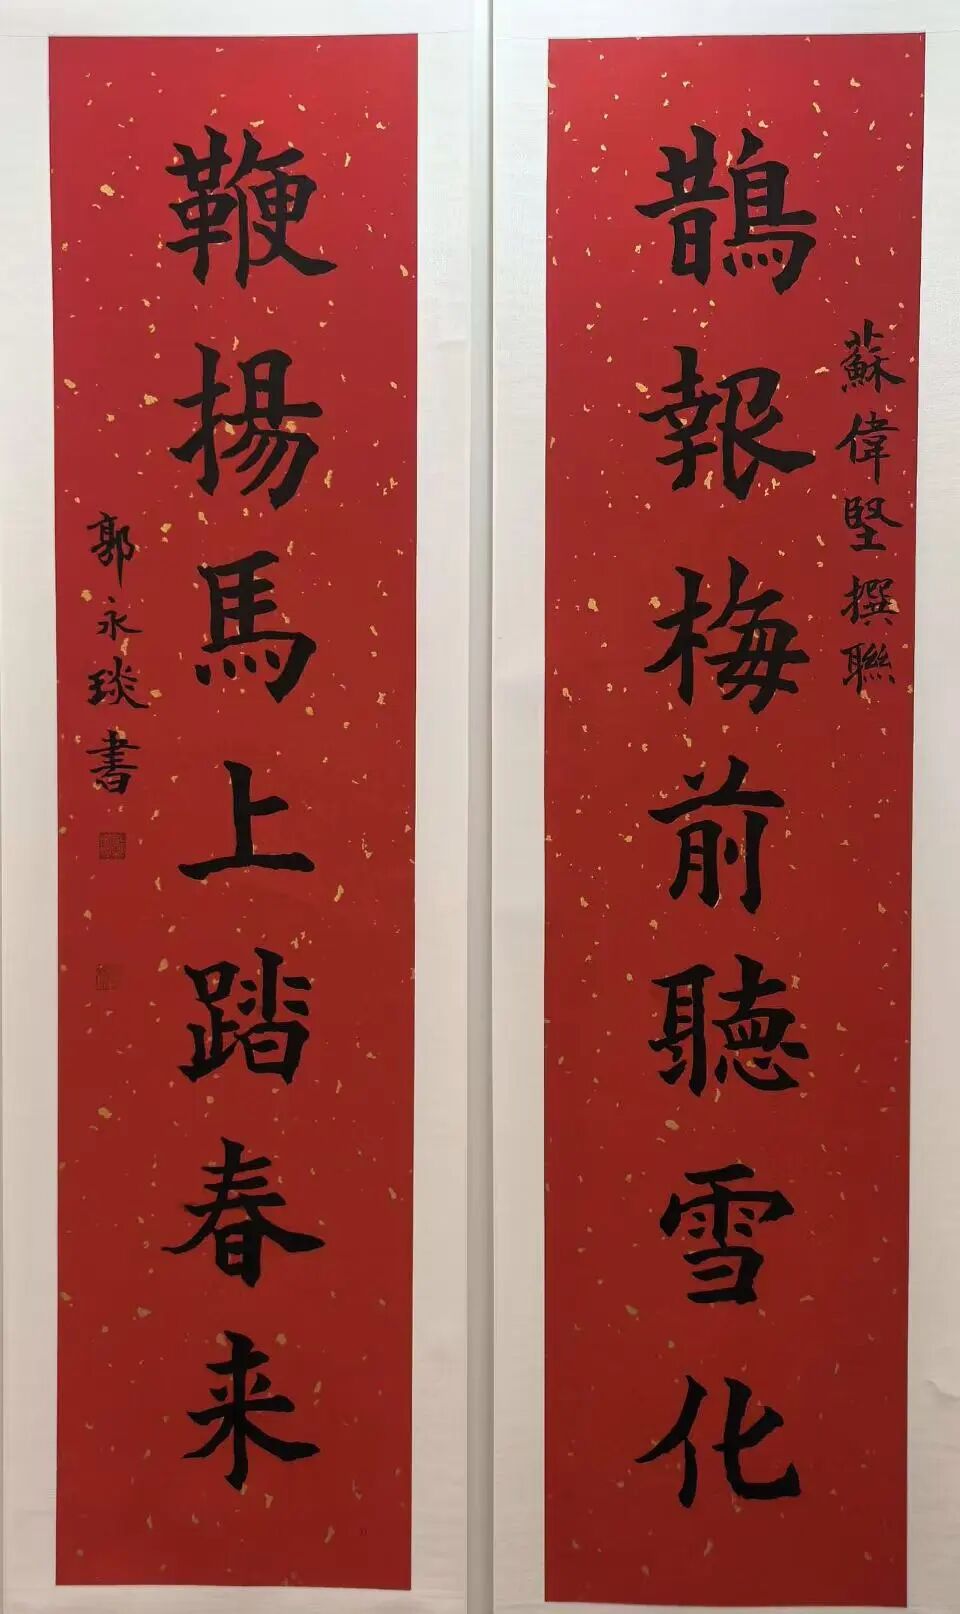 蘇偉堅撰聯
鵲報梅前聽雪化
鞭揚馬上踏春来
郭永琰書